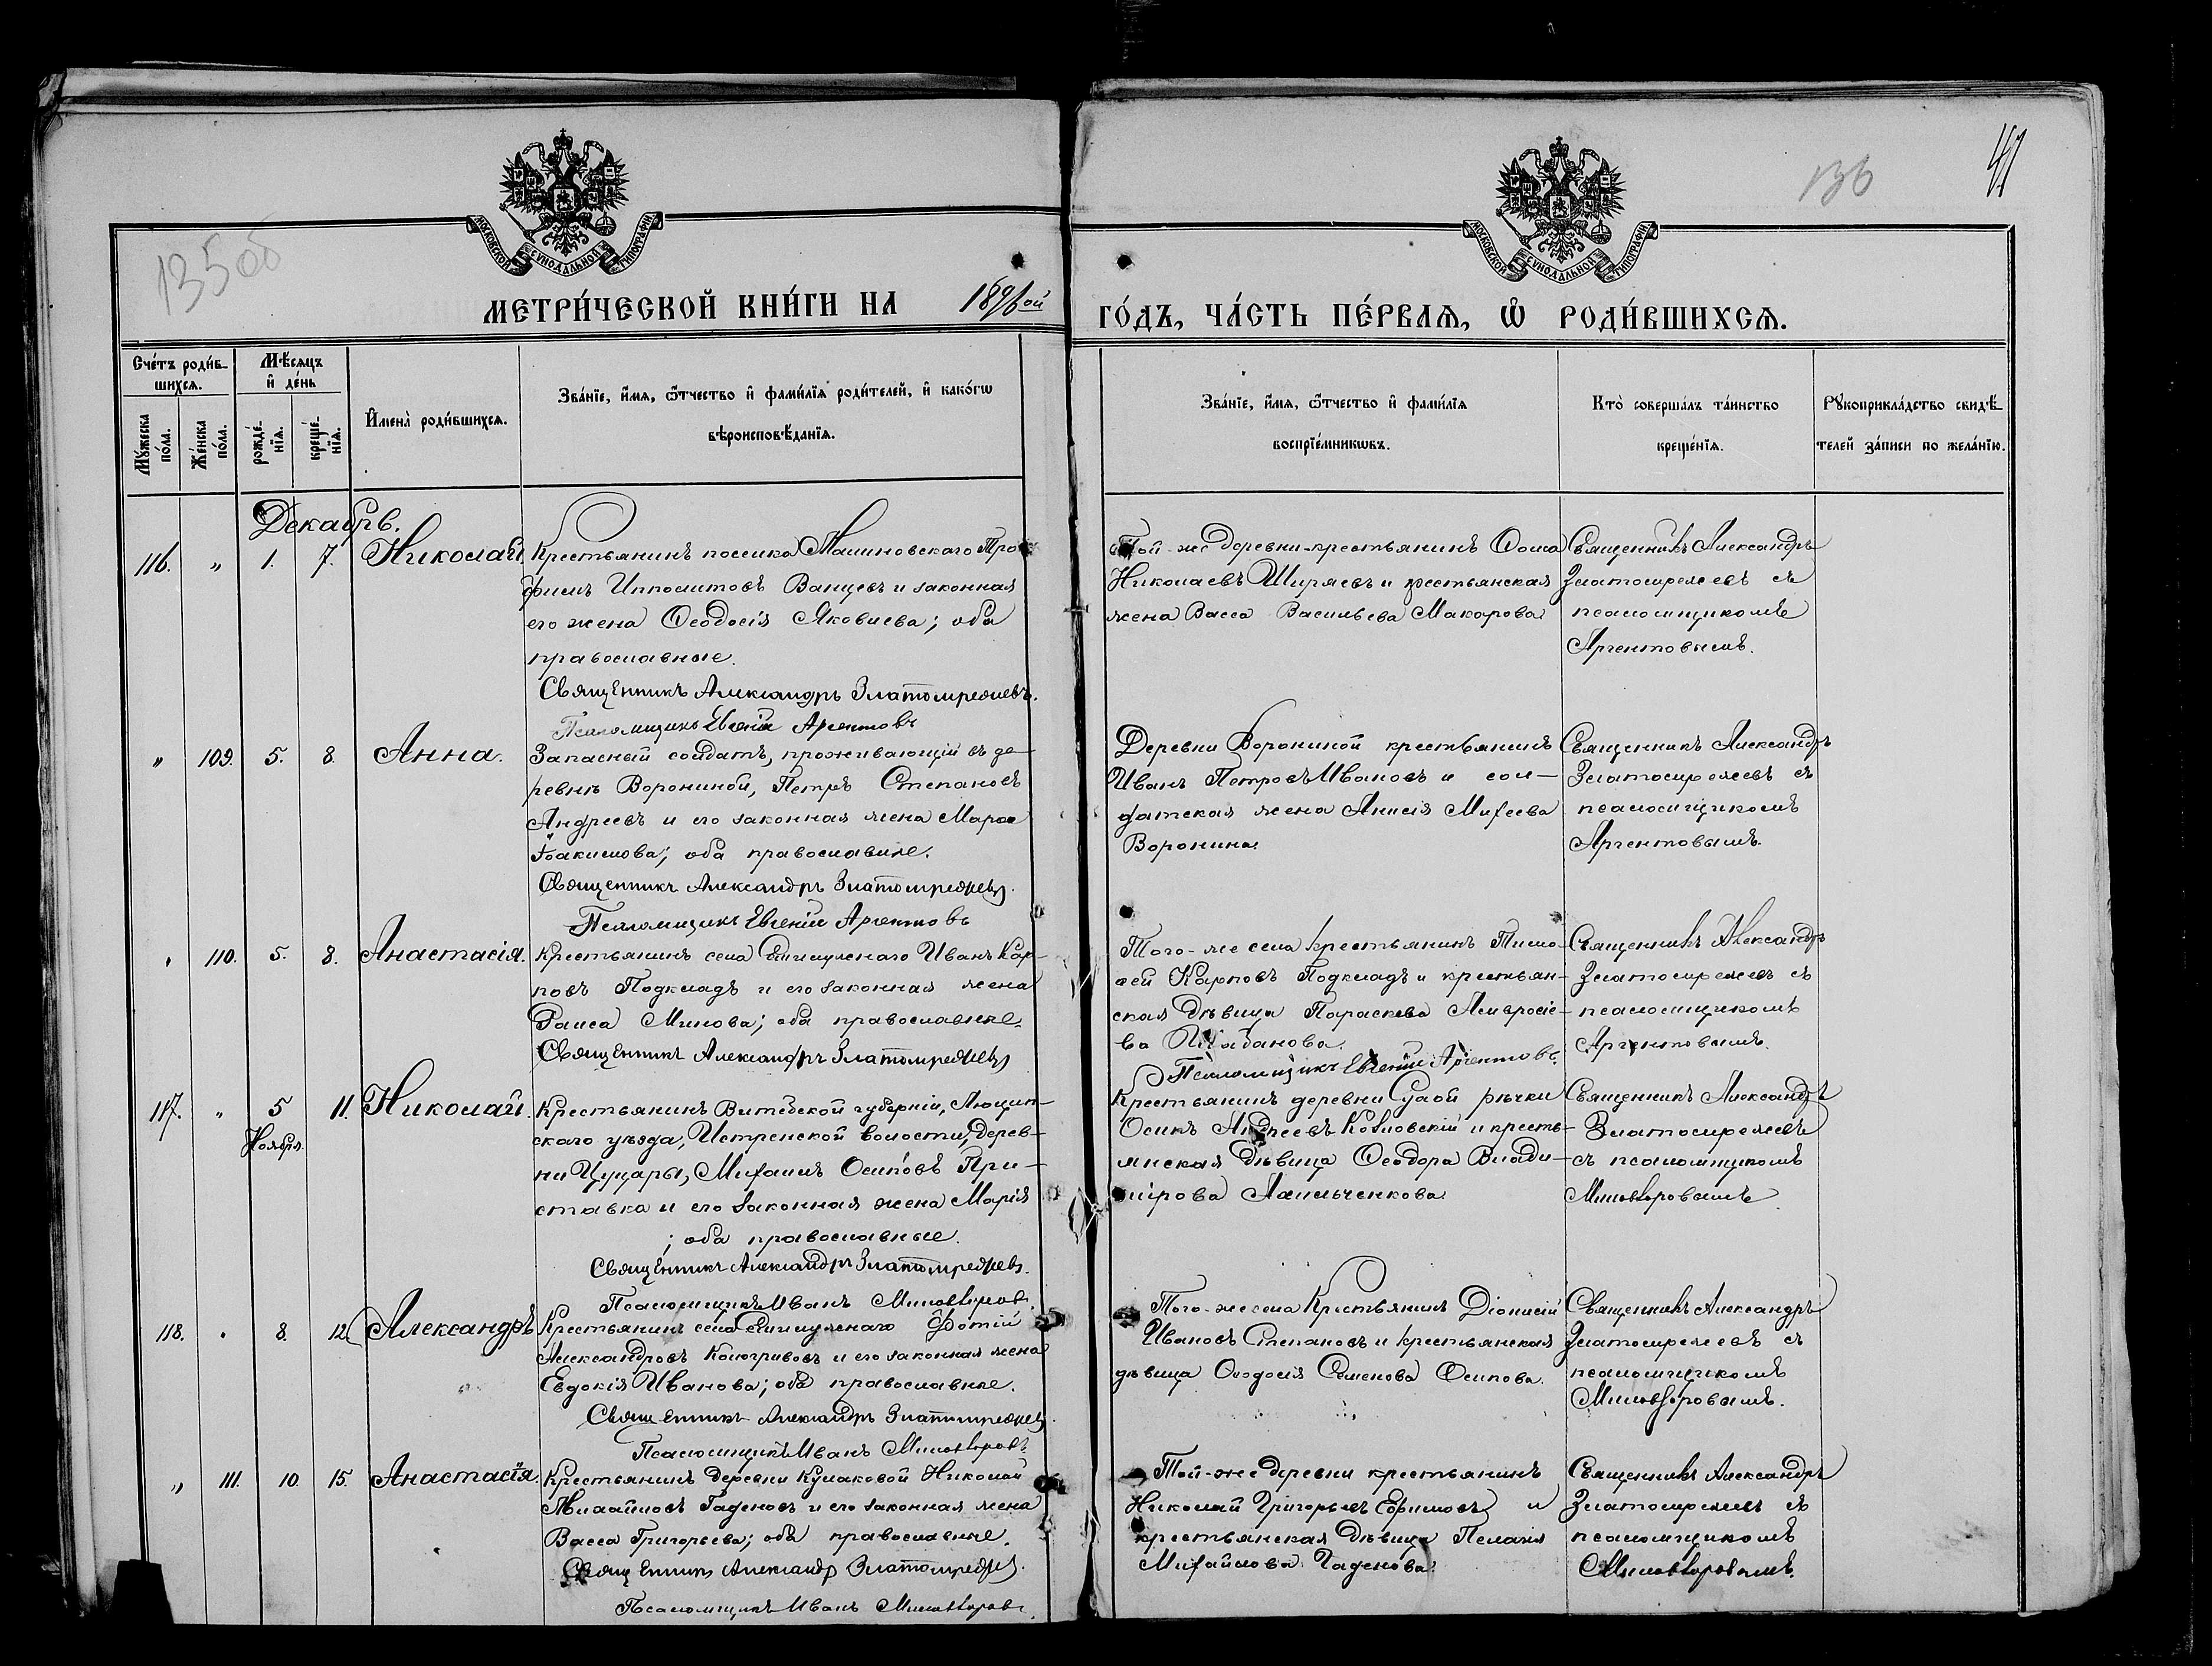 135об
136
41
МОСКОВСКОЙ СУНОДАЛЬНОЙ ТИПОГРАФІИ
МОСКОВСКОЙ СУНОДАЛЬНОЙ ТИПОГРАФІИ
МЕТРИ́ЧЕСКОЙ КНИ́ГИ НА 1896ой
ГО́ДЪ, ЧА́СТЬ ПЕ́РВАЯ, Ѡ҆ РОДИ́ВШИХСЯ.
Сче́тъ роди́в-
шихся.
Мѣ́сяцъ
и҆ де́нь
Му́жеска по́ла.
Же́нска по́ла.
рожде́-
нїя.
креще́-
нїя.
И҆мена̀ роди́вшихся.
Зва́нїе, и҆́мя, ѻ҆́тчество и҆ фами́лїя роди́телей, и҆ како́гѡ
вѣроисповѣ́данїя.
Зва́нїе, и҆́мя, ѻ҆́тчество и҆ фами́лїя
воспрїе́мникѡвъ.
Кто̀ соверша́лъ та́инство
креще́нїя.
Рукоприкла́дство свидѣ́-
телей за́писи по жела́нїю.
Декабрь.
116. „ 1. 7. Николай.
Крестьянинъ поселка Малиновскаго Тро-
фимъ Ипполитовъ Ванцевъ и законная
его жена Ѳеодосія Яковлева; оба
православные.
Священникъ Александръ Златомрежевъ.
Псаломщикъ Евгеній Аргентовъ
Той-же деревни крестьянинъ Ѳома
Николаевъ Ширяевъ и крестьянская
жена Васса Васильева Макарова
Священникъ Александръ
Златомрежевъ съ
псаломщикомъ
Аргентовымъ.
„ 109. 5. 8. Анна.
Запасный солдатъ, проживающій въ де-
ревнѣ Ворониной, Петръ Степановъ
Андреевъ и его законная жена Марѳа
Іоакимова; оба православные.
Священникъ Александръ Златомрежевъ.
Псаломщикъ Евгеній Аргентовъ
Деревни Ворониной крестьянинъ
Иванъ Петровъ Ивановъ и сол-
датская жена Анисія Михеева
Воронина
Священникъ Александръ
Златомрежевъ съ
псаломщикомъ
Аргентовымъ.
„ 110. 5. 8. Анастасія.
Крестьянинъ села Иванъ Кар-
повъ Подкладъ и его законная жена
Раиса Минова; оба православные.
Священникъ Александръ Златомрежевъ
Того-же села крестьянинъ Тимо-
ѳей Карповъ Подкладъ и крестьян-
ская дѣвица Параскева Амвросіе-
ва Шабанова.
Псаломщикъ Евгеній Аргентовъ.
Священникъ Александръ
Златомрежевъ съ
псаломщикомъ
Аргентовымъ.
117. „ 5 Ноября. 11. Николай.
Крестьянинъ Витебской губерніи, Люцин-
скаго уѣзда, Истренской волости, дерев-
ни Цуцары, Михаилъ Осиповъ При-
ставка и его законная жена Марія
; оба православные.
Священникъ Александръ Златомрежевъ.
Псаломщикъ Иванъ Миловзоровъ.
Крестьянинъ деревни Сухой рѣчки
Осипъ Андреевъ Козловскій и кресть-
янская дѣвица Ѳеодора Влади-
мірова Лапыченкова
Священникъ Александръ
Златомрежевъ
съ псаломщикомъ
Миловзоровымъ.
118. „ 8. 12. Александръ
Крестьянинъ села Фотій
Александровъ Кологривовъ и его законная жена
Евдокія Иванова; оба православные.
Священникъ Александръ Златомрежевъ.
Псаломщикъ Иванъ Миловзоровъ.
Того-же села Крестьянинъ Діонисій
Ивановъ Степановъ и крестьянская
дѣвица Ѳеодосія Семенова Осипова.
Священникъ Александръ
Златомрежевъ съ
псаломщикомъ
Миловзоровымъ.
„ 111. 10. 15. Анастасія.
Крестьянинъ деревни Кулаковой Николай
Михайловъ Гаденовъ и его законная жена
Васса Григорьева; оба православные.
Священникъ Александръ Златомрежевъ.
Псаломщикъ Иванъ Миловзоровъ.
Той-же деревни крестьянинъ
Николай Григорьевъ Ефимовъ и
крестьянская дѣвица Пелагія
Михайлова Гаденова.
Священникъ Александръ
Златомрежевъ съ
псаломщикомъ
Миловзоровымъ.